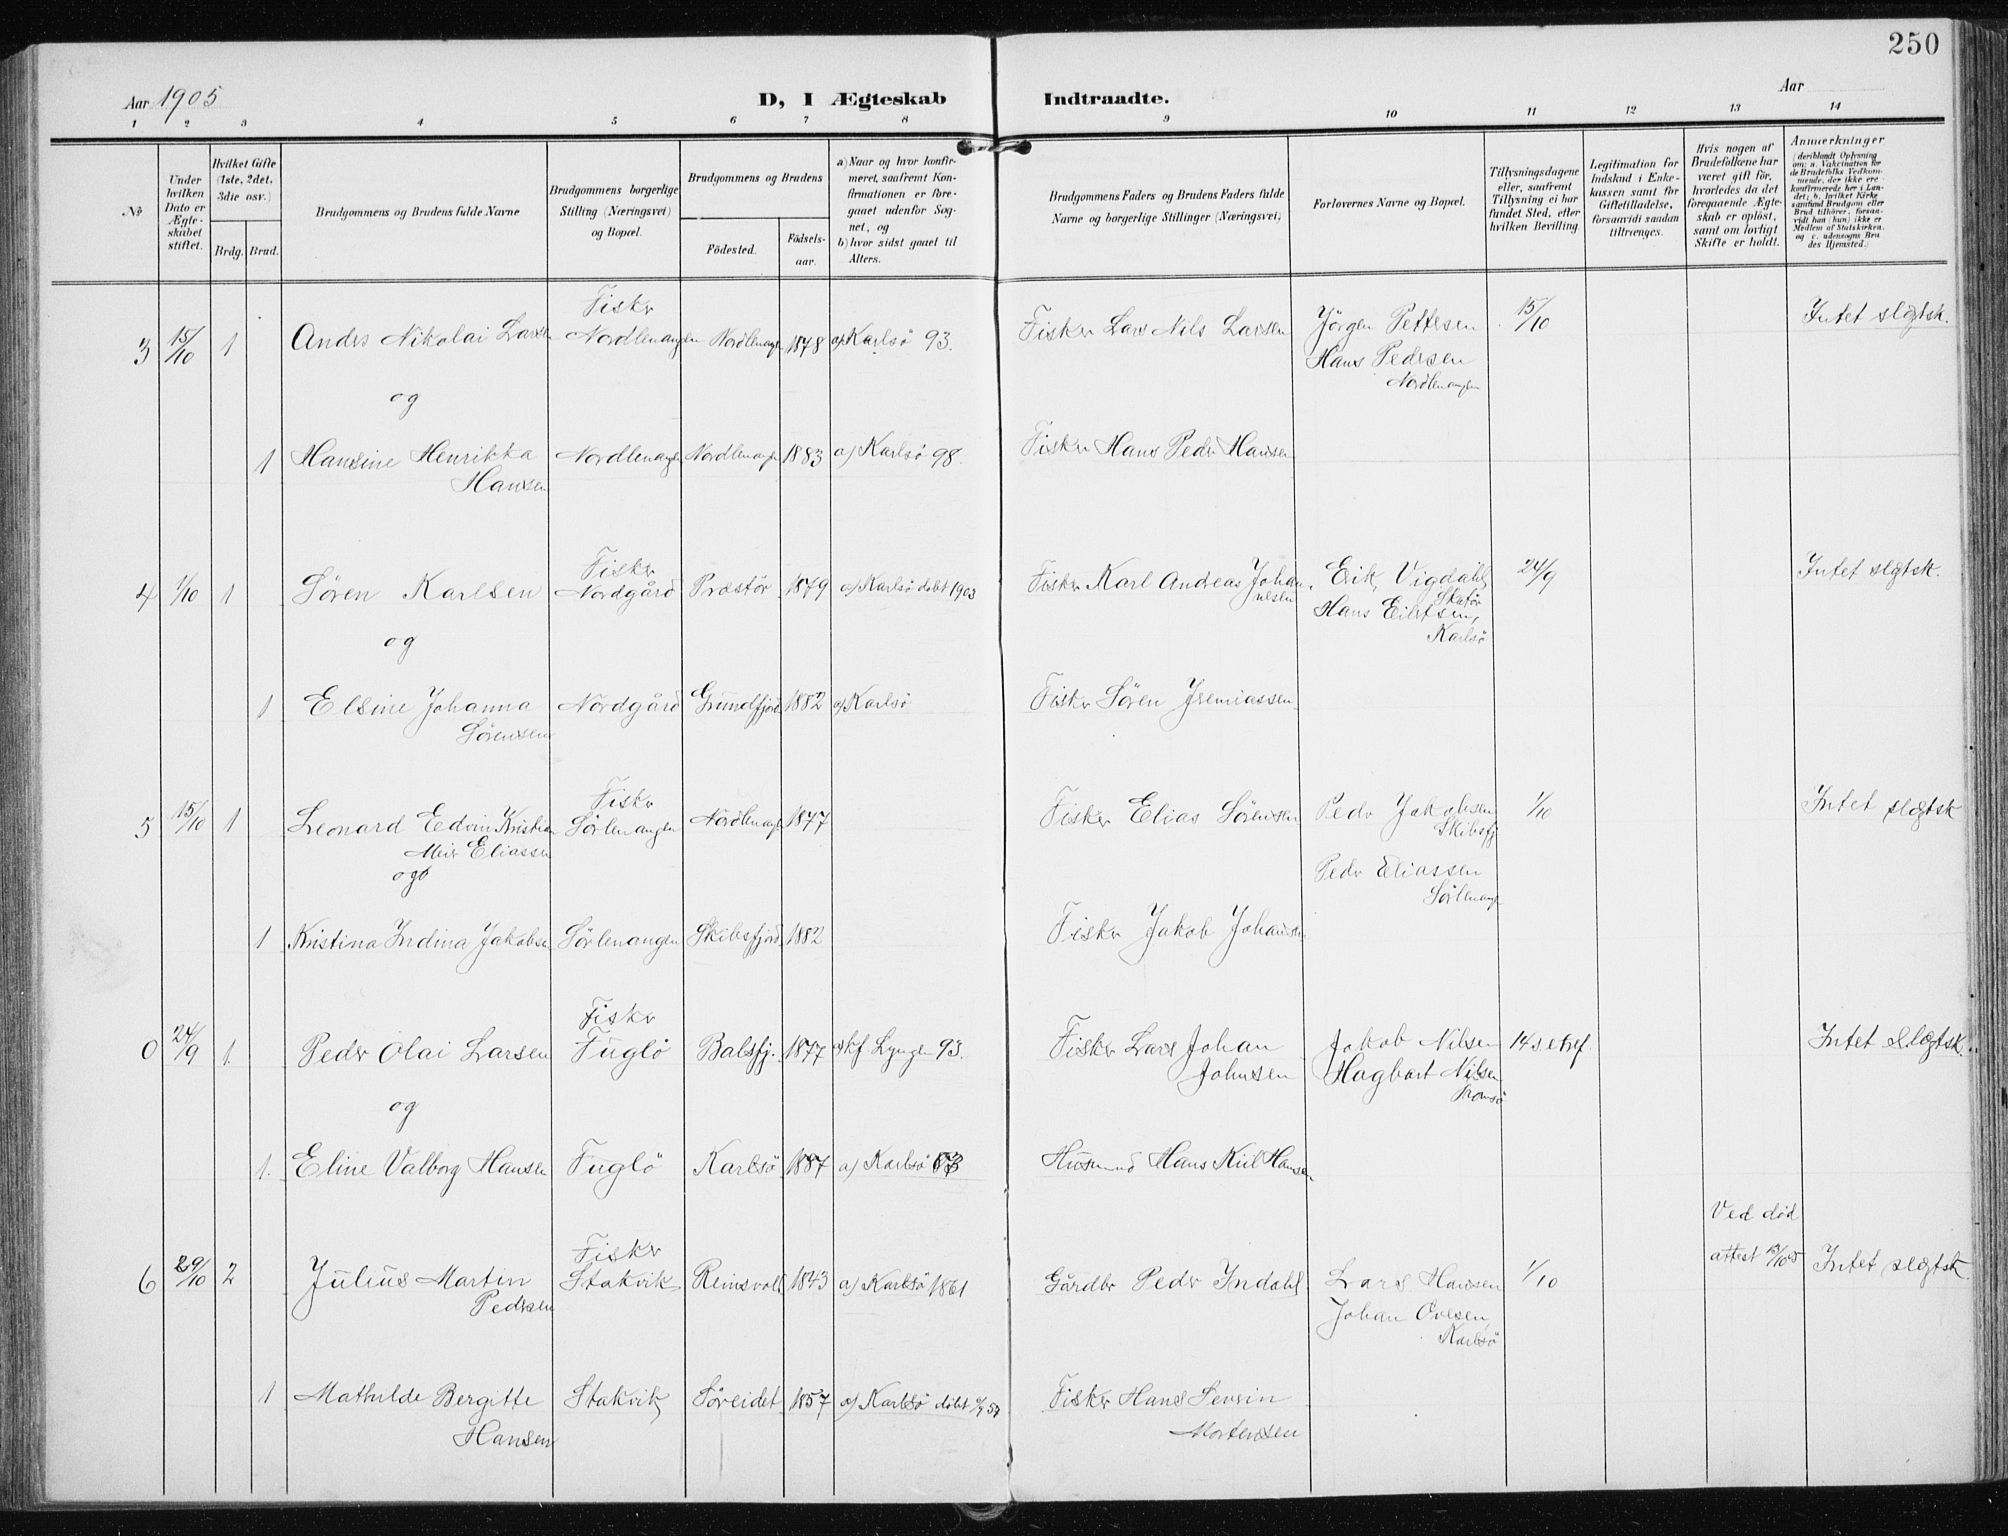 250
Aar 1905
D, I Ægteskab Indtraadte.
Aar
1 2 3 4 5 6 7 8 9 10 11 12 13 14
№
Under hvilken Dato er Ægteskabet stiftet.
Hvilket Gifte (1ste, 2det, 3die osv.)
Brdg. Brud.
Brudgommens og Brudens fulde Navne
Brudgommens borgerlige Stilling (Næringsvei) og Bopæl.
Brudgommens og Brudens
Födested.
Födselsaar.
a) Naar og hvor konfirmeret, saafremt Konfirmationen er foregaaet udenfor Sognet, og
b) hvor sidst gaaet til Alters.
Brudgommens Faders og Brudens Faders fulde Navne og borgerlige Stillinger (Næringsvei)
Forlovernes Navne og Bopæl.
Tillysningsdagene eller, saafremt Tillysning ei har fundet Sted, efter hvilken Bevilling.
Legitimation for Indskud i Enkekassen samt for Giftetilladelse, forsaavidt saadan tiltrænges.
Hvis nogen af Brudefolkene har været gift för, hvorledes da det foregaaende Ægteskab er oplöst, samt om lovligt Skifte er holdt.
Anmærkninger
(deriblandt Oplysning om: a. Vakcination for de Brudefolks Vedkommende, der ikke ere konfirmerede her i Landet; b. hvilket Kirkesamfund Brudgom eller Brud tilhörer, forsaavidt han (hun) ikke er Medlem af Statskirken, og c. udensogns Brudes Hjemsted.)
3 15/10 1 Anders Nikolai Larsen Fisker Nordlenangen Nordlenangen 1878 a) Karlsö 93. Fisker Lars Nils Larsen Jörgen Pettesen 15/10 Intet slægtsk.
Hans Pedersen
Nordlenangen
og
1 Hansine Henrikka Nordlenangen Nordlenangen 1883 a) Karlsö 98. Fisker Hans Peder Hansen
Hansen
4 1/10 1 Sören Karlsen Fisker Nordgård Præstör 1879 a) Karlsö döbt 1903 Fisker Karl Andreas Johannesen Erik Vigdahl, Skatör 24/9 Intet slægtsk.
Hans Eilertsen,
Karlsö
og
1 Elsine Johanna Nordgård Grundfjord 1882 a) Karlsö Fisker Sören Jremiassen
Sörensen
5 15/10 1 Leonard Edvin Kristian Fisker Sörlenangen Nordlenang 1877 Fisker Elias Sörensen Peder Jakobsen 1/10 Intet slægtsk
Meier Eliassen Skibsfj
og Peder Eliassen
Sörlenang
1 Kristina Indina Jakobsen Sörlenangen Skibsfjord 1882 Fisker Jakob Johansen
0 24/9 1. Peder Olai Larsen Fisker Fuglö Balsfj. 1877 Lyngen 93. Fisker Lars Johan Jakob Nilsen 14 s. e tref. Intet Slægtsk.
Johnsen Hagbart Nilsen
Tromsö
og
1. Eline Valborg Hansen Fuglö Karlsö 1887 a) Karlsö Husmand Hans Kiil Hansen
6 29/10 2 Julius Martin Fisker Stakvik Reinsvoll 1843 a) Karlsö 1861 Gårdbr Peder Indahl Lars Hansen 1/10 Ved död attest Intet slægtsk.
Pedersen Johan Ovesen,
Karlsö
1 Mathilde Bergitte Stakvik Söreidet 1857 a) Karlsö döbt Fisker Hans Severin
Hansen Mortensen